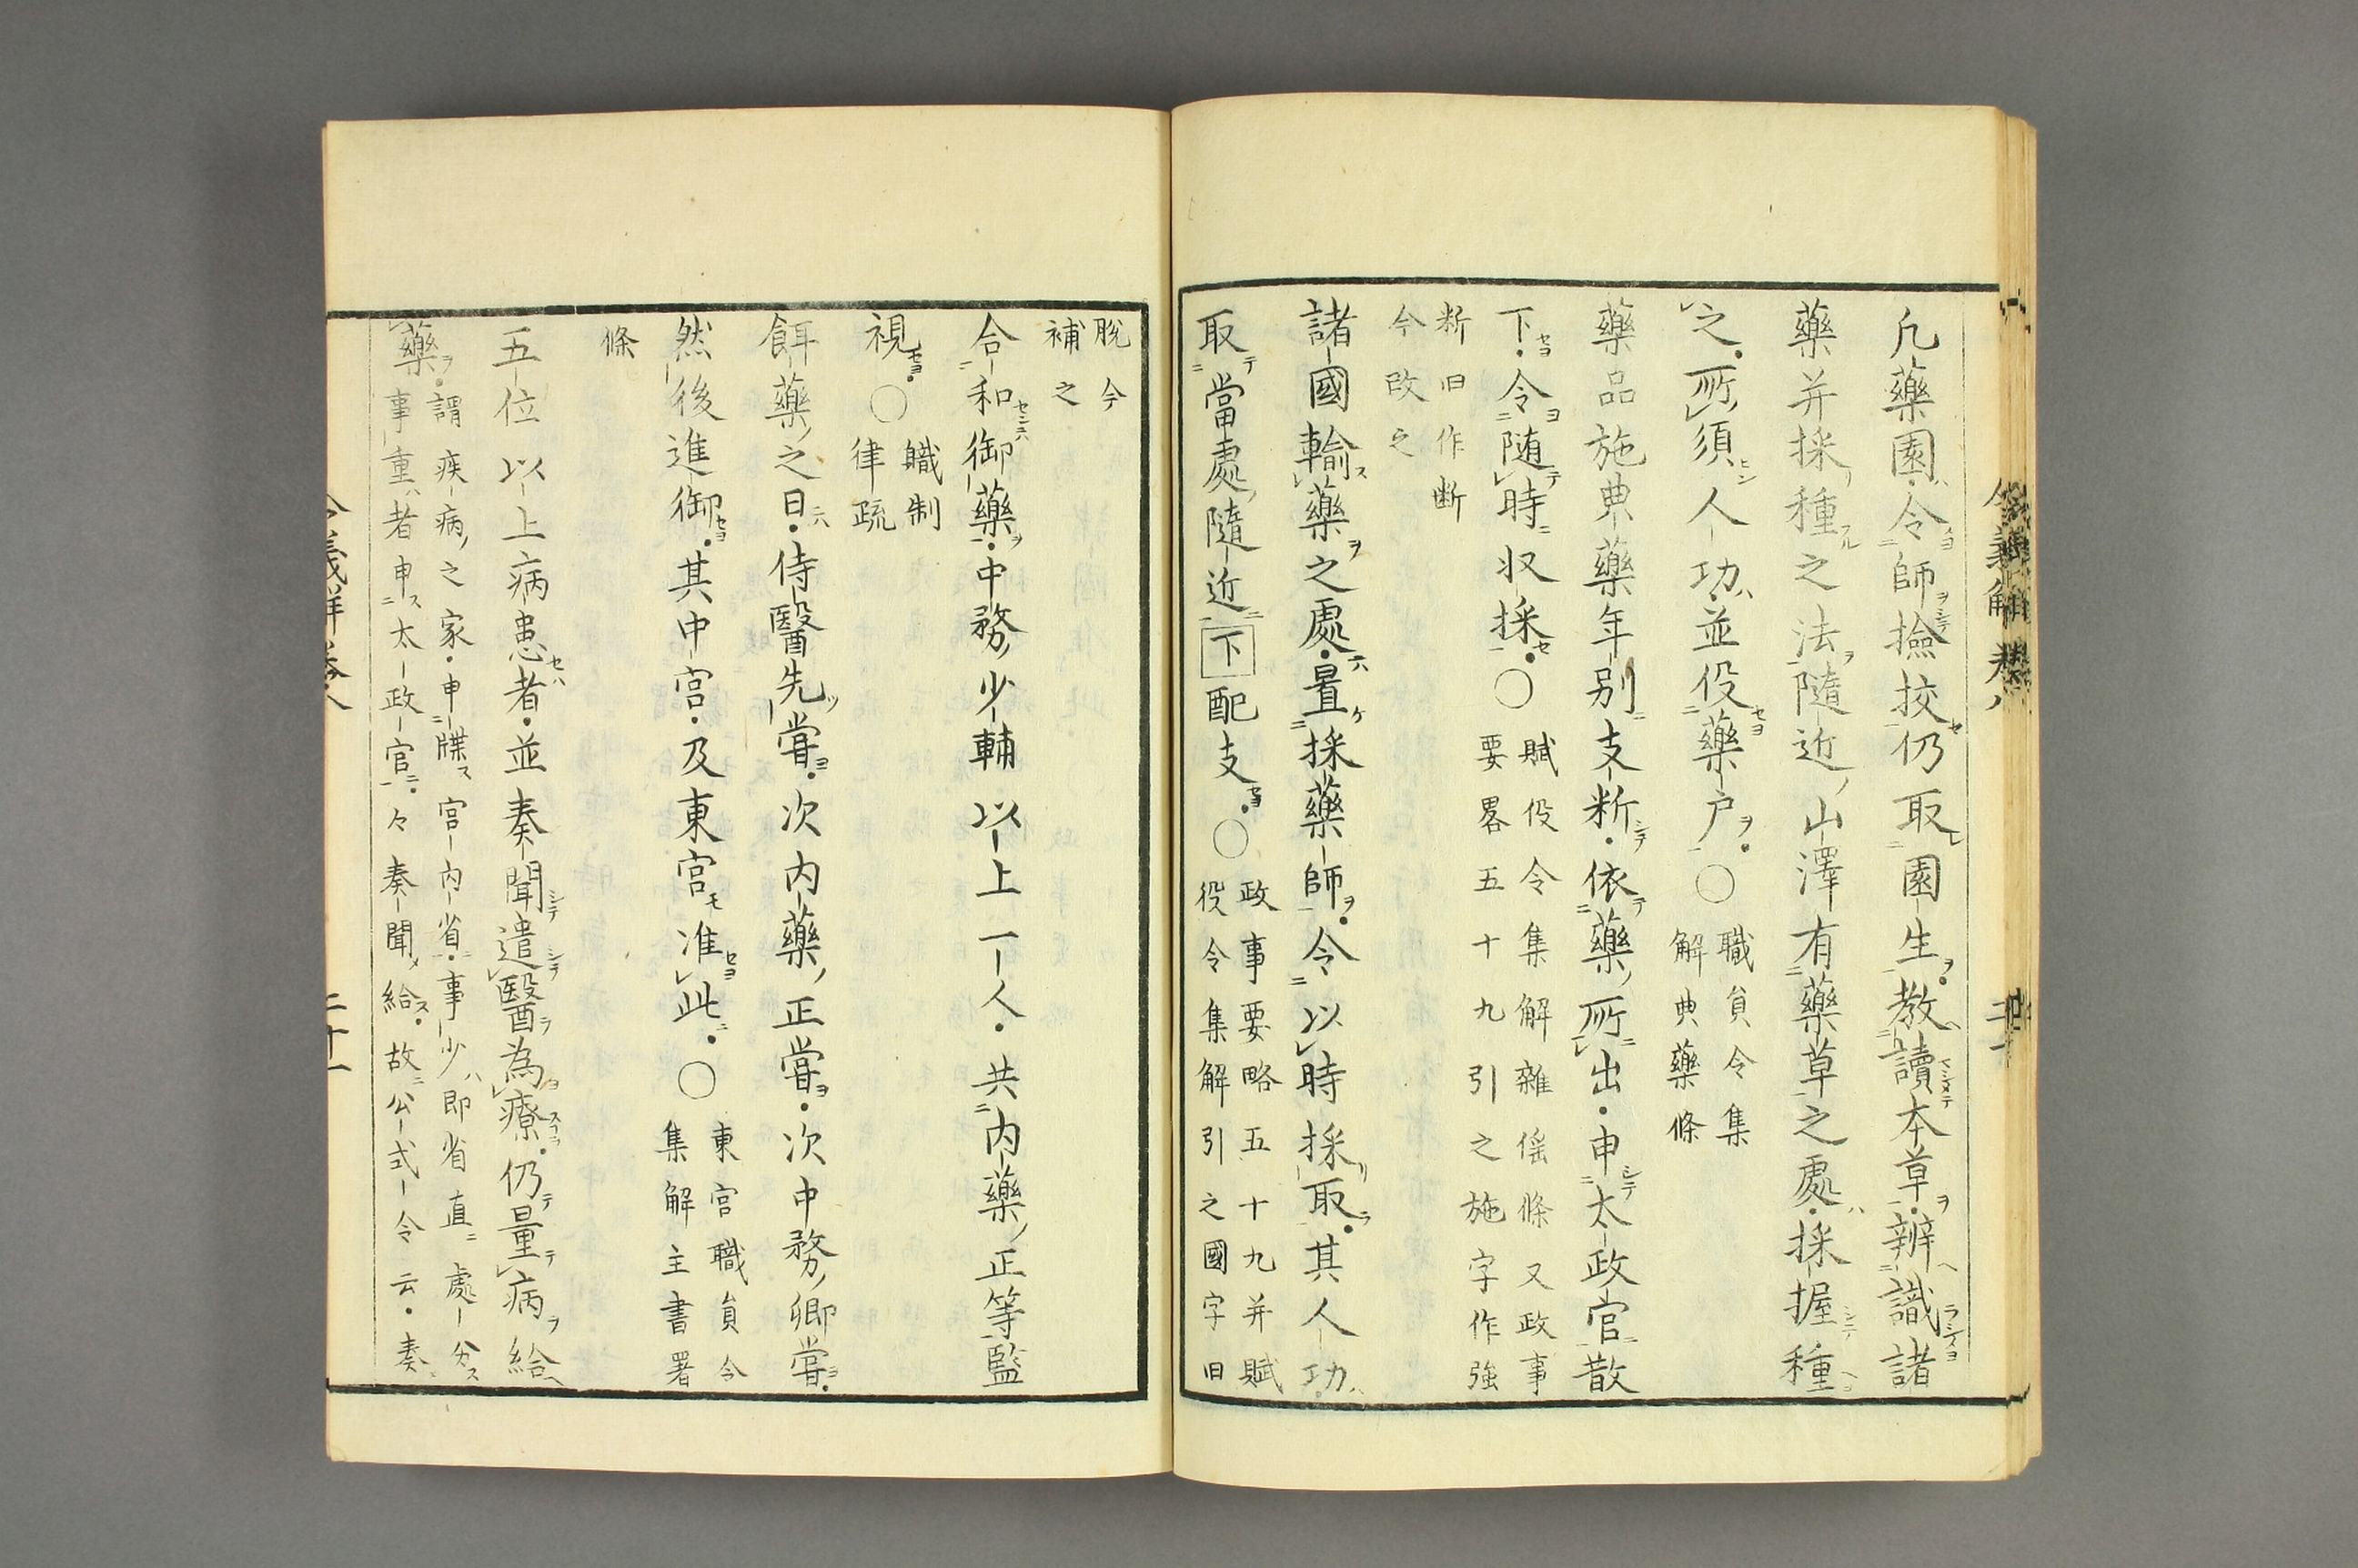 凡藥園令師撿挍仍取園生教讀本草辨識諸
藥并採種之法隨近山澤有藥草之處採握種
之所須人功並役藥戶○職員令集
解典藥條
藥品施典藥年別支断依藥所出申太政官散
下令随時収採○賦役令集解雜徭條又政事
要畧五十九引之施字作強
断旧作断
今改之
諸國輸藥之處置採藥師令以時採取其人功
取當處隨近下配支○政事要略五十九并賦
役令集解引之國字旧
脫今
補之
合和御藥中務少輔以上一人共内藥正等監
視○職制
律疏
餌藥之日侍醫先嘗次内藥正嘗次中務卿嘗
然後進御其中宮及東宮准此○東宮職員令
集解主書署
條
五位以上病患者並奏聞遣醫為療仍量病給
藥謂疾病之家申牒宮内省事少即省直處分
事重者申太政官々奏聞給故公式令云奏
令義解卷八
二十一